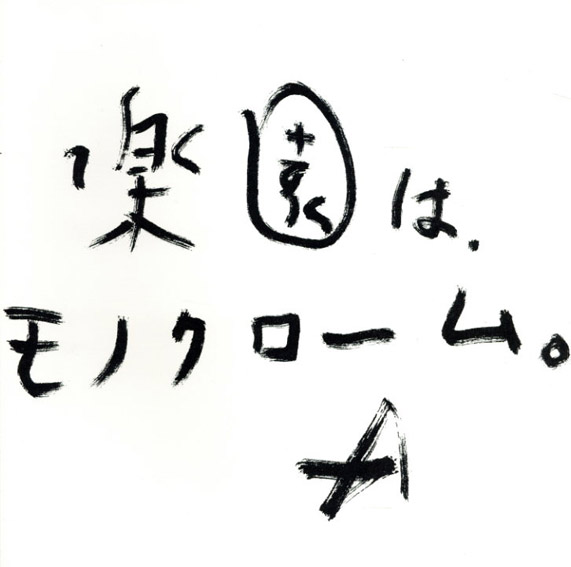 楽園は、
モノクローム。
A